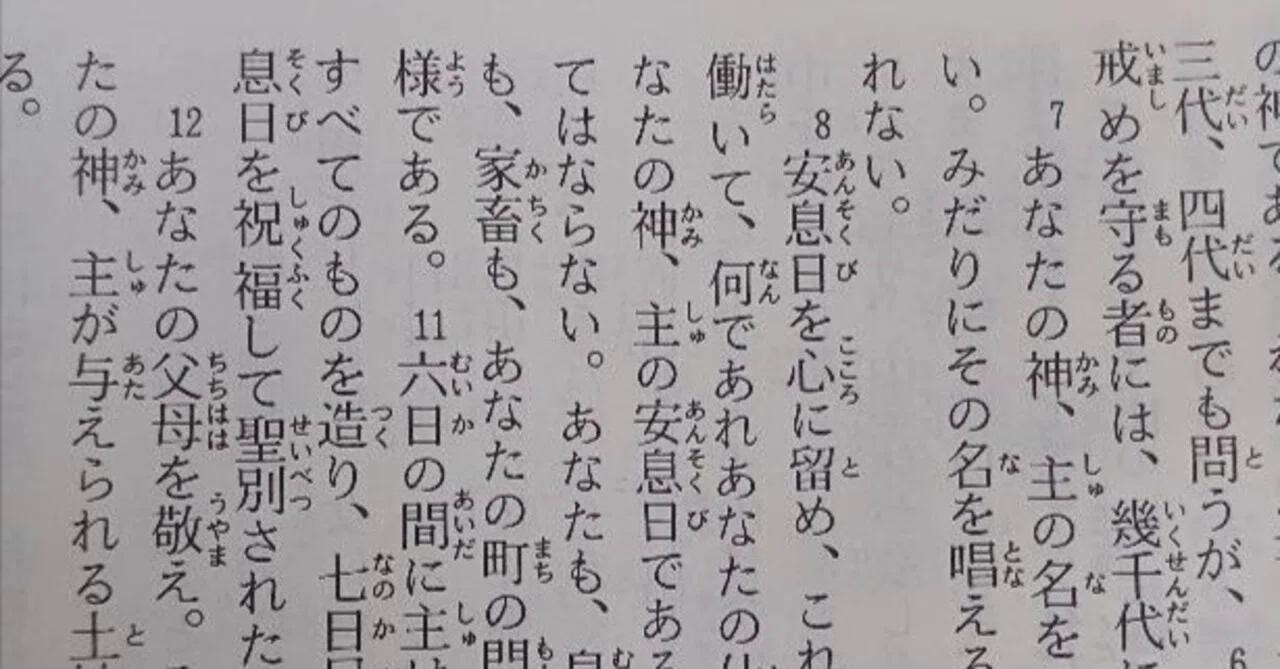 の神である
三代、四代までも問うが、
戒めを守る者には、幾千代
7 あなたの神、主の名を
い。みだりにその名を唱える
れない。
8 安息日を心に留め、これ
働いて、何であれあなたの
なたの神、主の安息日である
てはならない。あなたも、
も、家畜も、あなたの町の門
様である。11 六日の間に主
すべてのものを造り、七日
息日を祝福して聖別された
12 あなたの父母を敬え。
たの神、主が与えられる土
る。